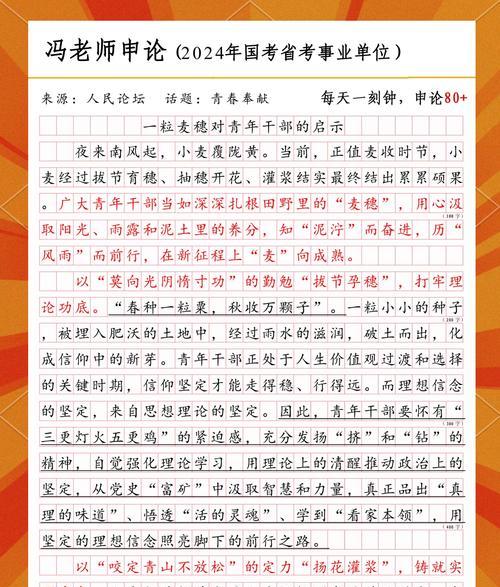 冯老师申论(2024年国考省考事业单位)
来源：人民论坛 话题：青春奉献 每天一刻钟，申论80+
一粒麦穗对青年干部的启示
夜来南风起，小麦覆陇黄。当前，正值麦收时节，小
麦经过拔节育穗、抽穗开花、灌浆结实最终结出累累硕
果。广大青年干部当如深深扎根田野里的“麦穗”，用心汲
(100字)
取阳光、雨露和泥土里的养分，知“泥泞”而奋进，历“
风雨”而前行，在新征程上“麦”向成熟。
以“莫向光阴惰寸功”的勤勉“拔节孕穗”，打牢理
论功底。“春种一粒粟，秋收万颗子”。一粒小小的种子
(200字)
，被埋入肥沃的土地中，经过雨水的滋润，破土而出，化
成信仰中的新芽。青年干部正处于人生价值观过渡和选择
的关键时期，信仰坚定才能走得稳、行得远。而理想信念
的坚定，来自思想理论的坚定。因此，青年干部要怀有“
(300字)
三更灯火五更鸡”的紧迫感，充分发扬“挤”和“钻”的
精神，自觉强化理论学习，用理论上的清醒推动政治上的
坚定，从党史“富矿”中汲取智慧和力量，真正品出“真
理的味道”、悟透“活的灵魂”、学到“看家本领”，用
(400字)
坚定的理想信念照亮脚下的前行之路。
以“咬定青山不放松”的定力“扬花灌浆”，铸就实